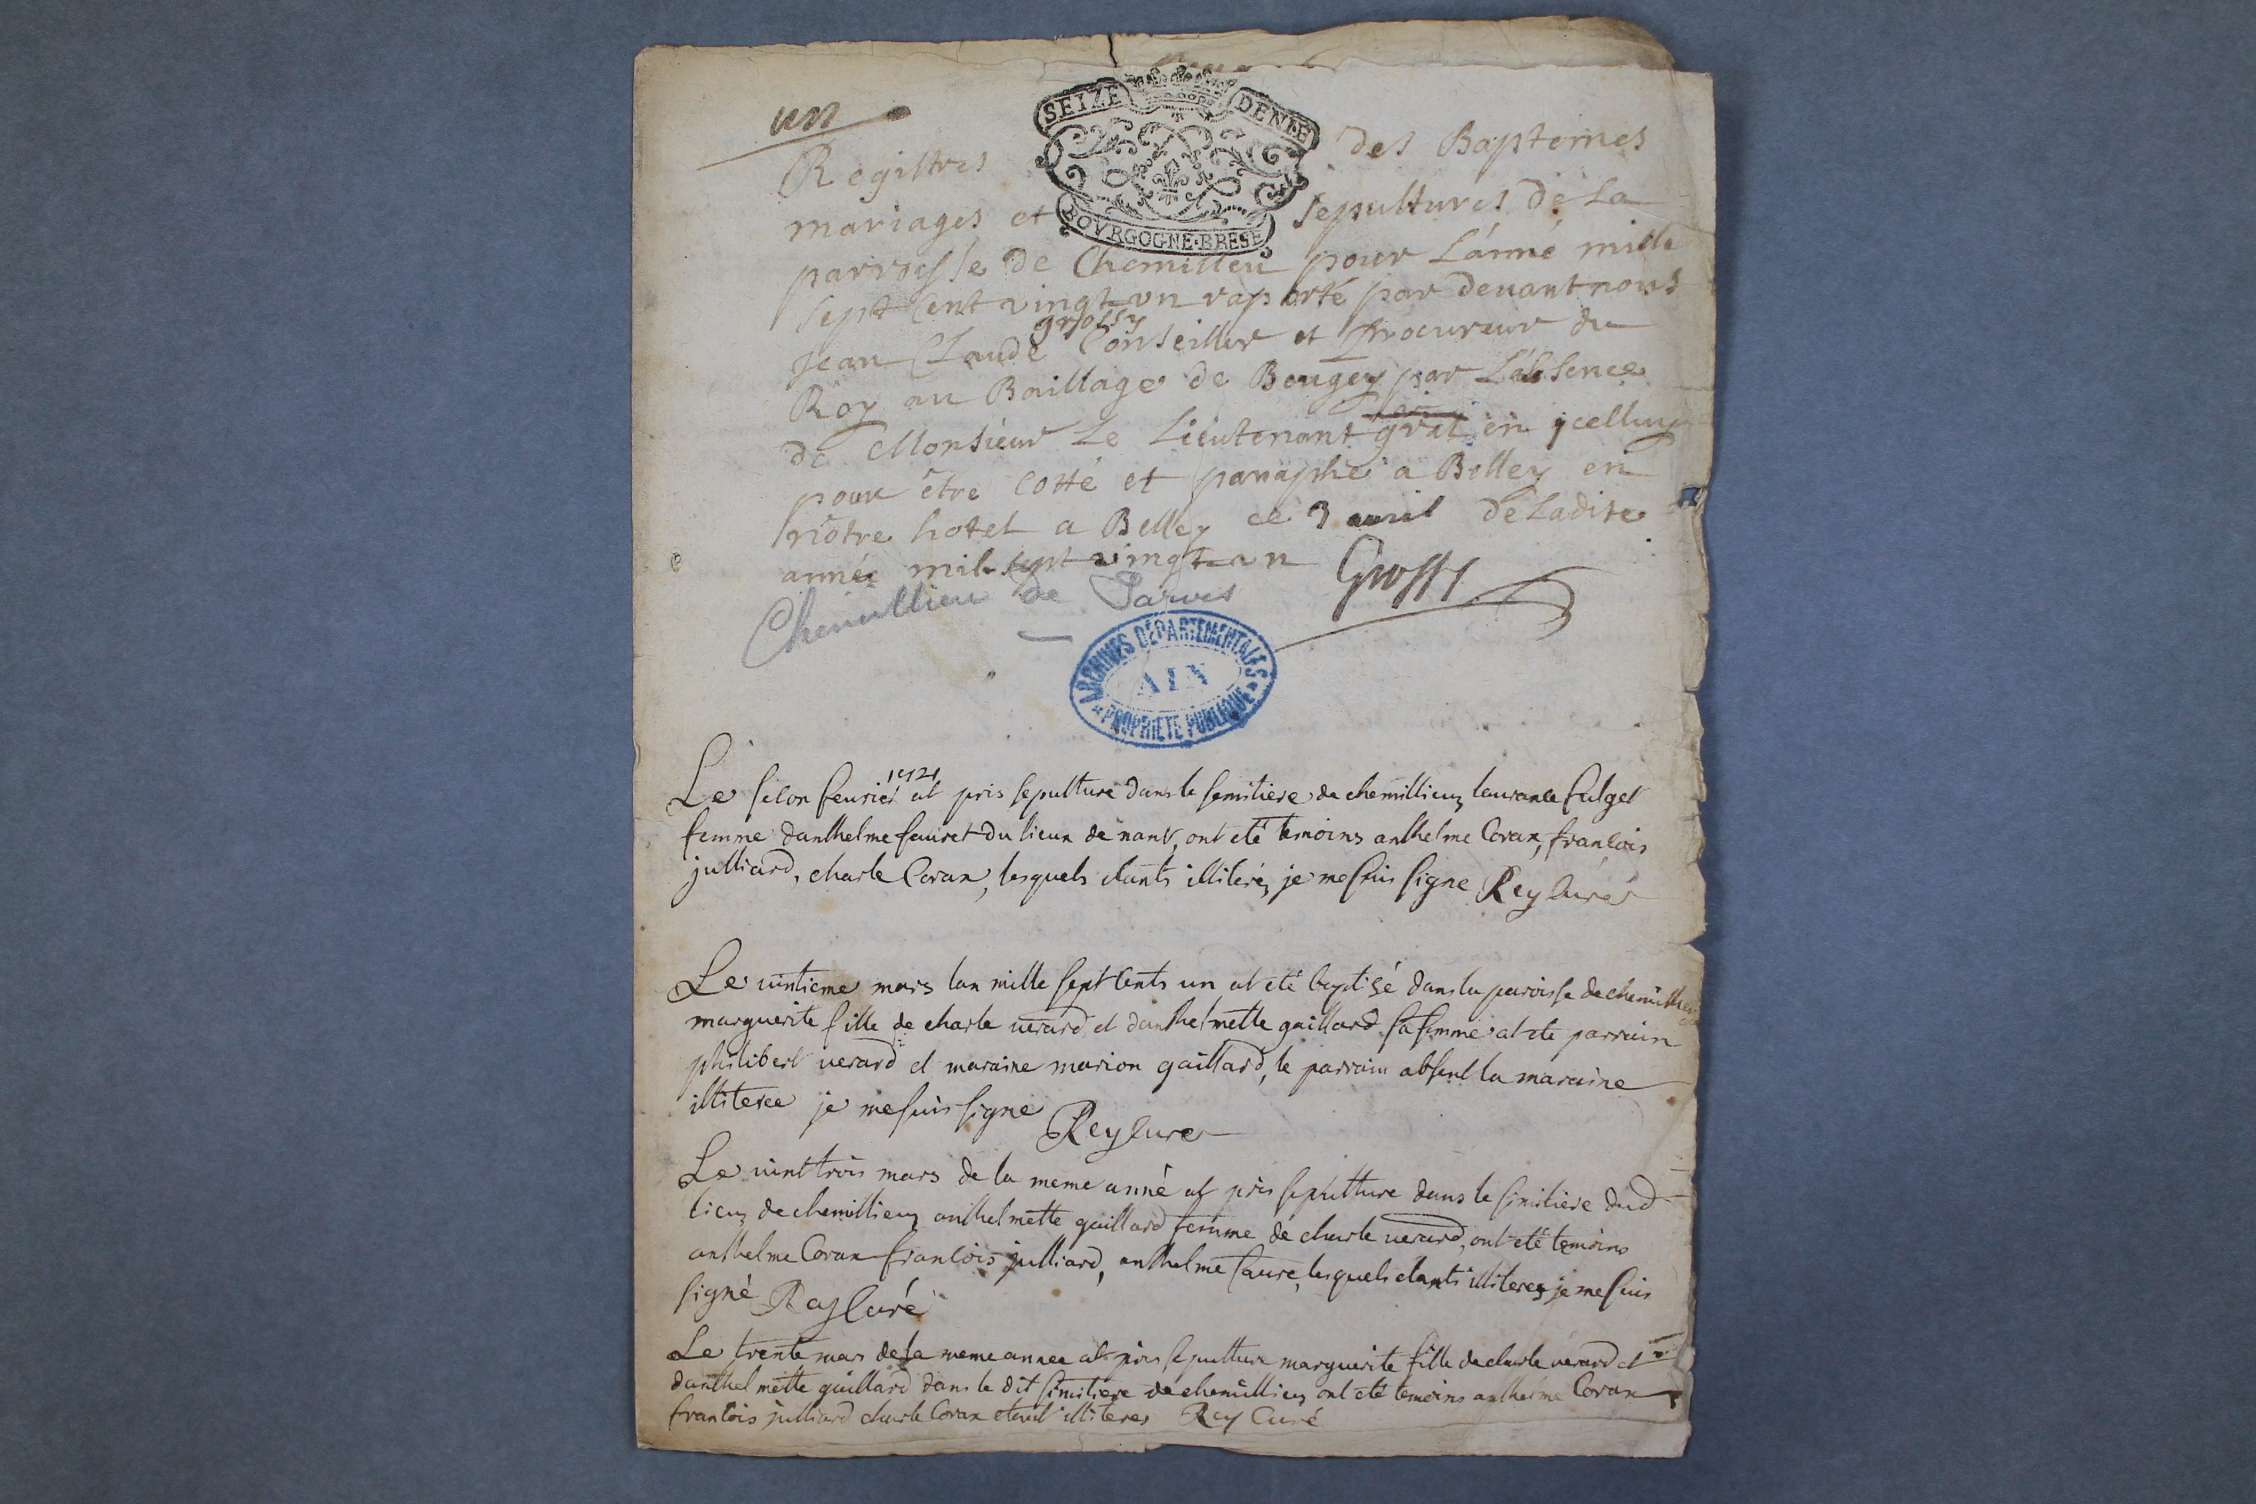 un
SEIZE DENIE
BOVRGOGNE·BRESE
Registres des Baptemes
mariages et sepultures de La
parroysse de Chemilleu pour L'anné mille
sept cent vingt vn raporté par deuant nous
Jean Claude grossy Conseiller et procureur du
Roy au Baillage de Beugey par L'absence
de Monsieur Le Lieutenant gral en jcelluy
pour être cotté et paraphé a Belley en
nôtre hotel a Belley ce 3 auril de Ladite
année mil sept vingt un
Grossy
Chemillieu de Parves
ARCHIVES DEPARTEMENTALES
AIN
PROPRIETE PUBLIQUE
Le feurier 1721 at pris sepulture dans le semitiere de chemillieu laurance fulget
femme danthelme fauret du lieux de nant, ont eté temoins anthelme Corax, francois
julliard, charle Corax, lesquels etants illiteré, je me suis signe Rey Curé
Le uintieme mars lan mille sept cents un at eté baptisé dans la paroisse de chemillieu
marguerite fille de charle uerard et danthelmette gaillard sa femme at ete parrain
philibert uerard et maraine marion gaillard, le parrain absent la maraine
illiteree je me suis signe Rey Cure
Le uint trois mars de la meme anné at pris sepulture dans le simitiere dud
lieu de chemillieu anthelmette gaillard femme de charle uerard, ont eté temoins
anthelme Corax francois julliard, anthelme faure, lesquels etants illiteres je me suis
signé Rey Curé
Le trente mars de la meme annee at pris sepulture marguerite fille de charle uerard et
danthelmette gaillard dans le dit simitiere de chemillieu ont eté temoins anthelme Corax
francois julliard charle Corax etant illiteres Rey Curé